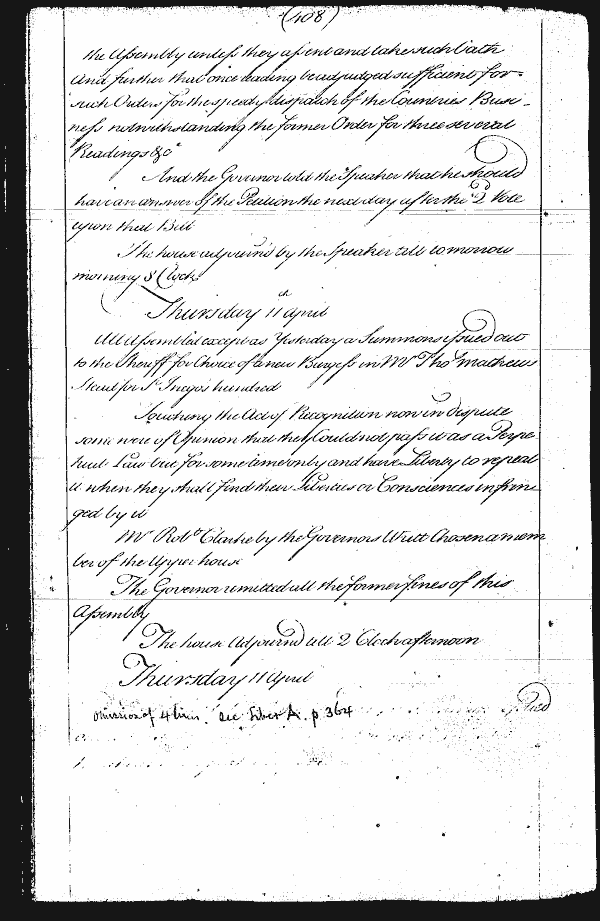 (408)
the Assembly unless they assent and take such Oath
And further that once reading be adjudged sufficient for
such Orders for the speedy dispatch of the Countries Busi-
ness notwithstanding the former Order for three several
Readings &c.a
And the Governor told the Speaker that he should
have an answer of the Petition the next day after the 2.d Vote
upon that Bill
The house adjourned by the Speaker till to morrow
morning 8 Clock
Thursday 11th April
All Assembled except as Yesterday a Summons issued out
to the Sheriff for Choice of a new Burgess in Mr Tho.s Mathews
Stead for St Inegos hundred
Touching the Act of Recognition now in dispute
some were of Opinion that they Could not pass it as a Perpe-
tual Law but for some time only and have Liberty to repeal
it when they shall find their Liberties or Consciences infrin-
ged by it
Mr Rob.t Clarke by the Governors Writt Chosen a mem
ber of the Upper house
The Governor remitted all the former fines of this
Assembly
The house Adjourned till 2 Clock afternoon
Thursday 11 April
omission of 4 lines. see Liber A. p. 364